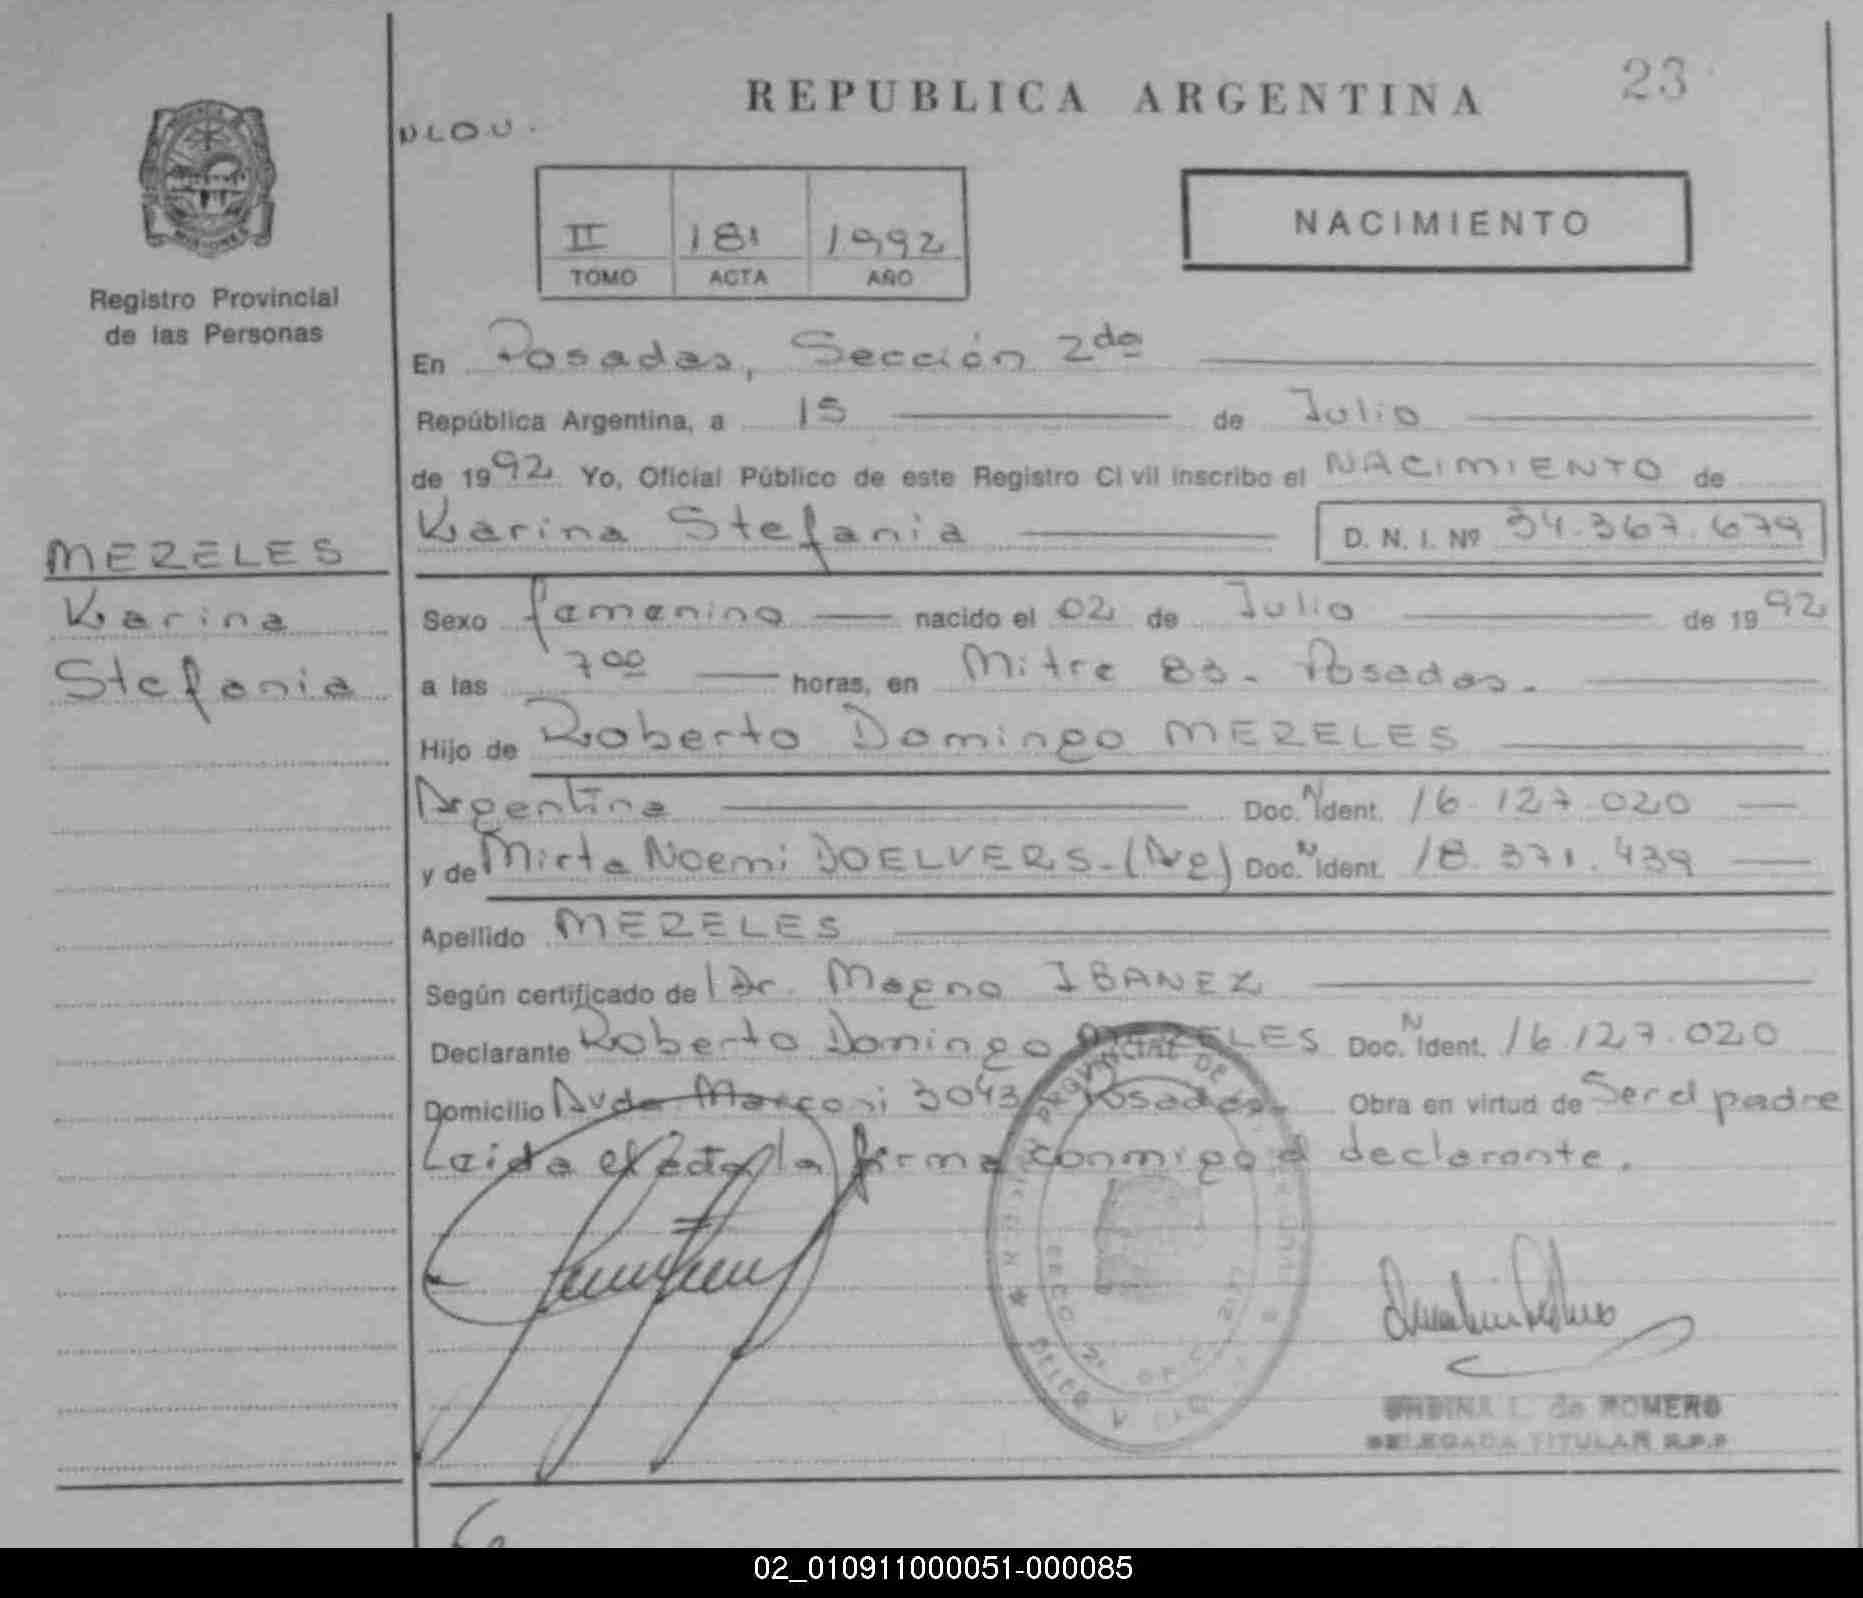 REPUBLICA ARGENTINA
23
NACIMIENTO
II 181 1992
TOMO ACTA AÑO
Registro Provincial
de las Personas
En Posadas, Sección 2da
República Argentina, a 15 de Julio
de 1992 Yo, Oficial Público de este Registro Civil inscribo el NACIMIENTO de
Karina Stefania D. N. I. Nº 34.367.679
MEZELES
Karina
Stefania
Sexo femenino nacido el 02 de Julio de 1992
a las 7 00 horas, en Mitre 83 - Posadas.
Hijo de Roberto Domingo MEZELES
Argentina Doc. N Ident. 16.127.020
y de Mirta Noemi DOELVERS - (Arg) Doc. N Ident. 18.371.439
Apellido MEZELES
Según certificado de l Dr. Magno IBANEZ
Declarante Roberto Domingo MEZELES Doc. N Ident. 16.127.020
Domicilio Avda Marconi 3043 Posadas. Obra en virtud de Ser el padre
Leida el acta la firma conmigo el declarante.
L. de ROMERO
DELEGADA TITULAR R.P.P
02_010911000051-000085